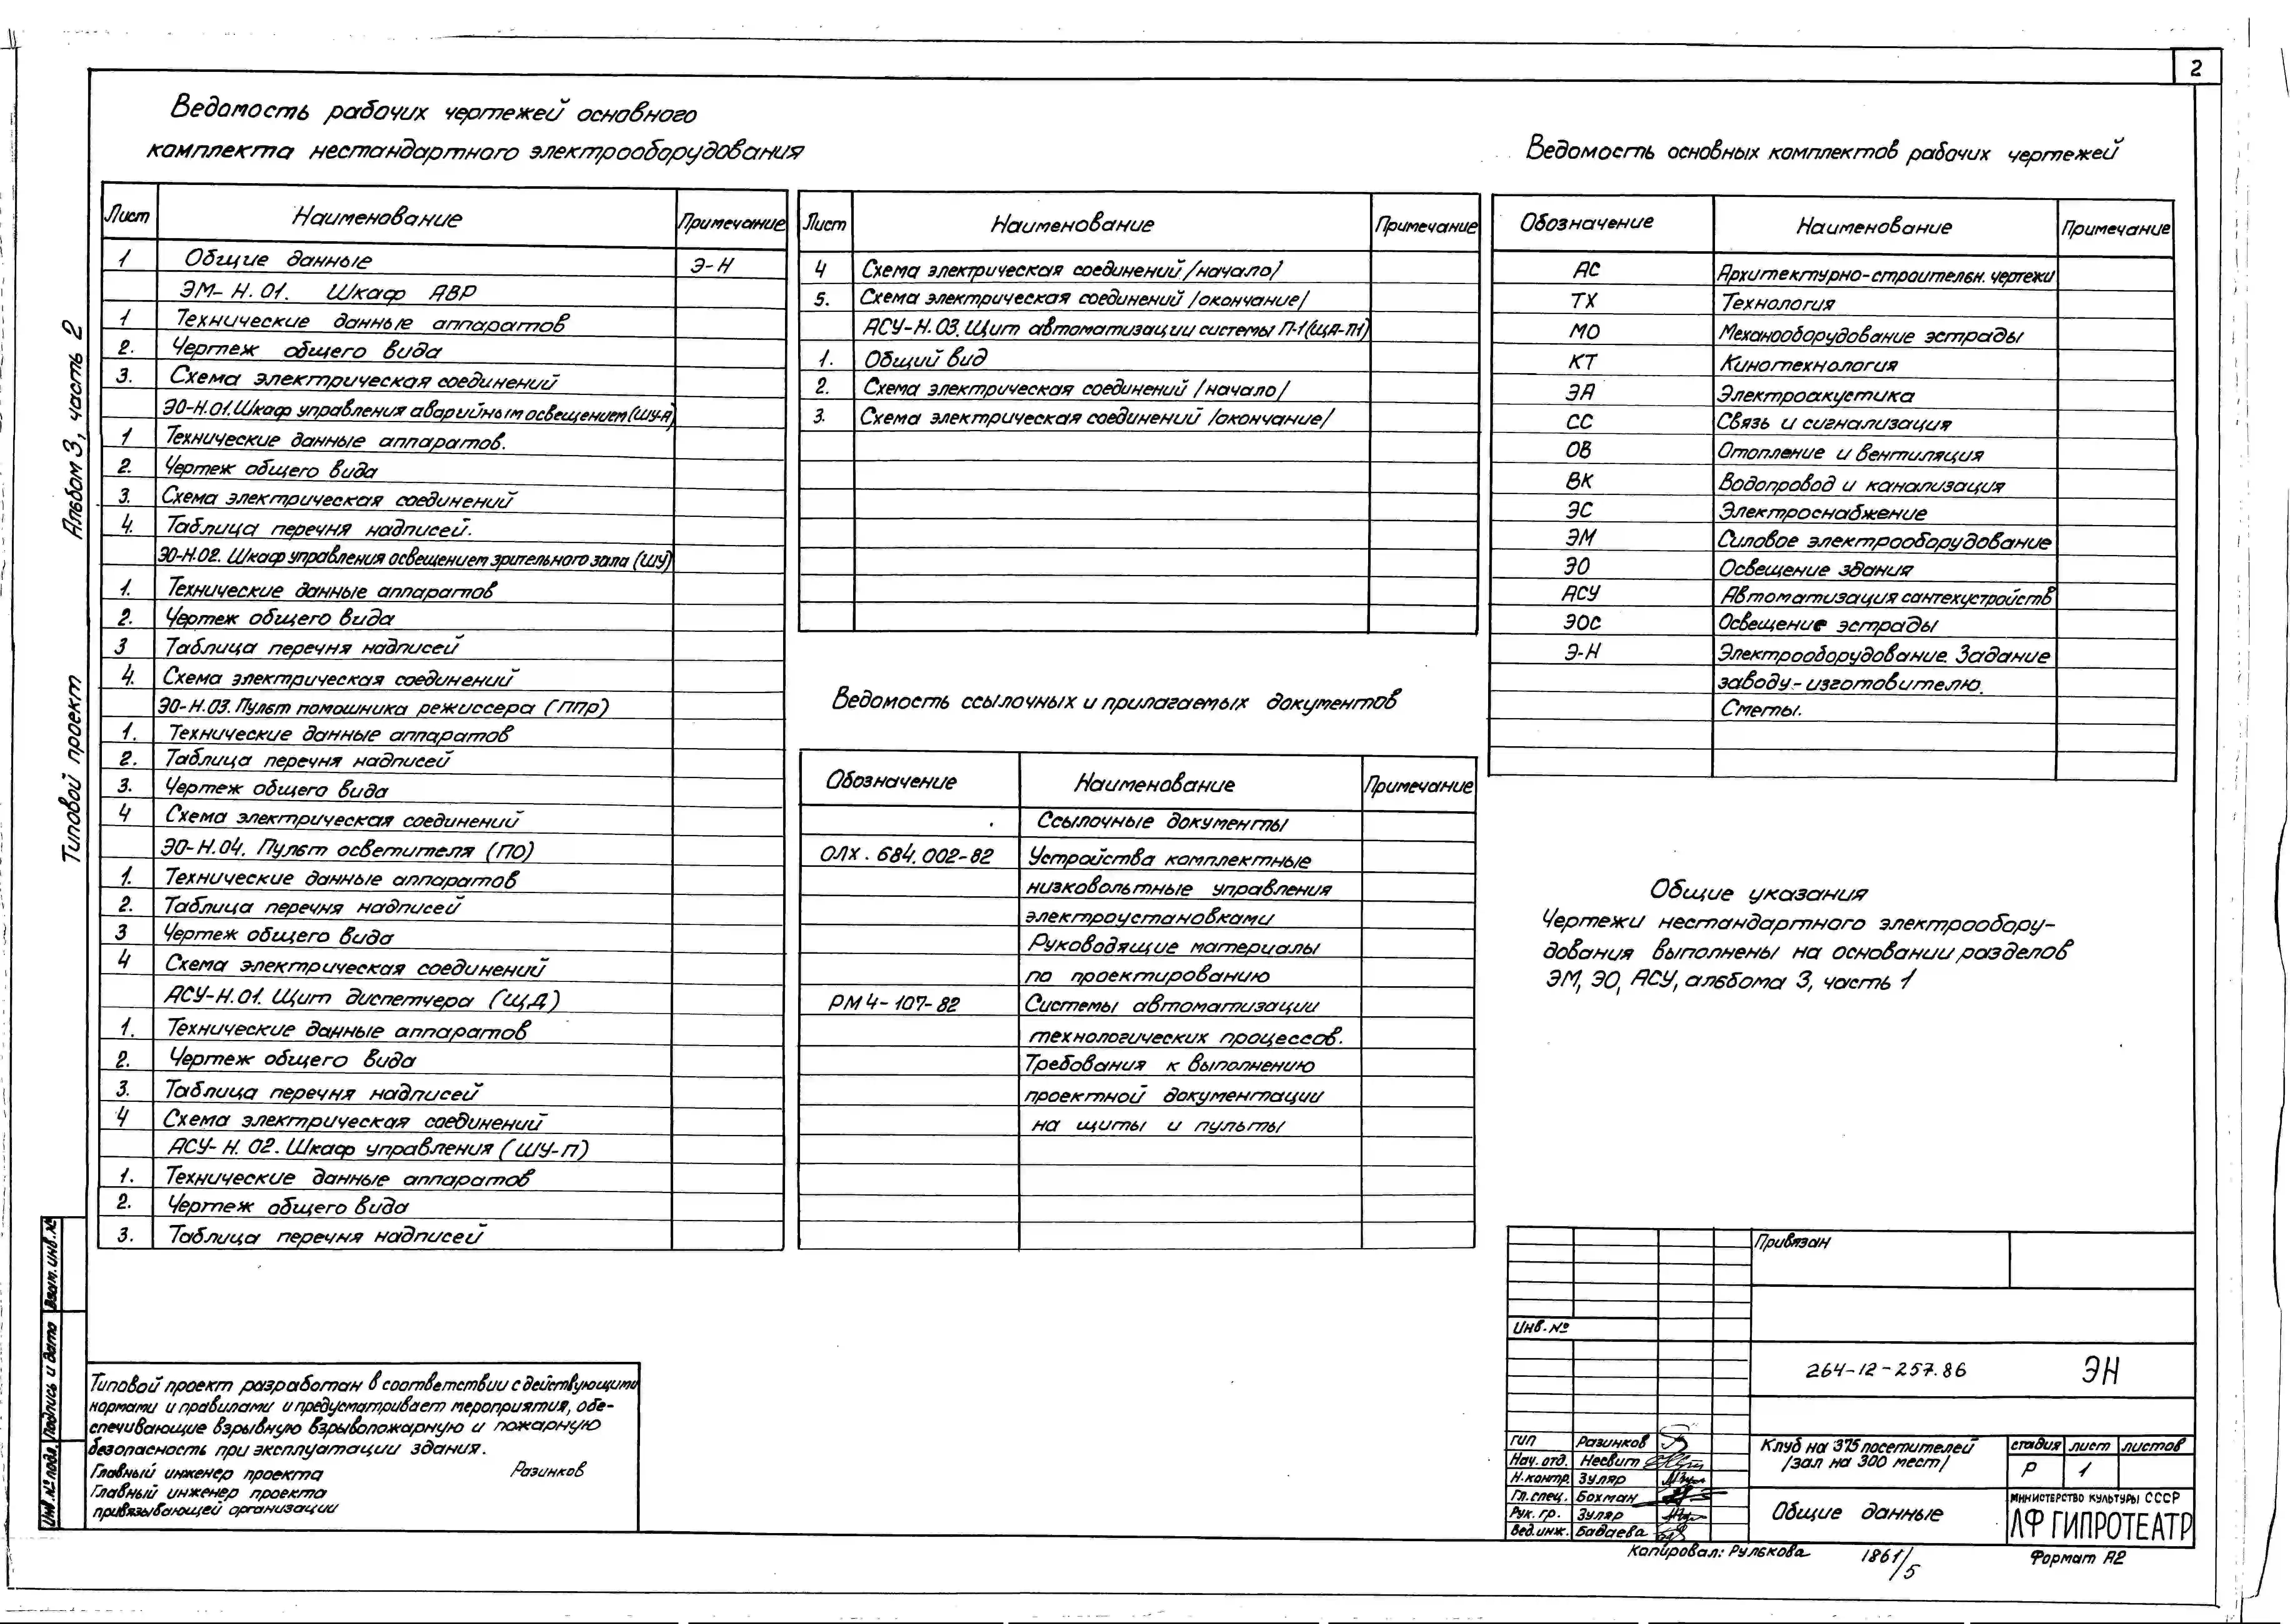 2
Ведомость рабочих чертежей основного
комплекта нестандартного электрооборудования
Лист Наименование Примечание
1 Общие данные Э-Н
ЭМ-Н.01. Шкаф АВР
1 Технические данные аппаратов
2. Чертеж общего вида
3. Схема электрическая соединений
ЭО-Н.01. Шкаф управления аварийным освещением (ШУ-А)
1 Технические данные аппаратов.
2. Чертеж общего вида
3. Схема электрическая соединений
4. Таблица перечня надписей.
ЭО-Н.02. Шкаф управления освещением зрительного зала (ШУ)
1. Технические данные аппаратов
2. Чертеж общего вида
3 Таблица перечня надписей
4. Схема электрическая соединений
ЭО-Н.03. Пульт помошника режиссера (ППР)
1. Технические данные аппаратов
2. Таблица перечня надписей
3. Чертеж общего вида
4 Схема электрическая соединений
ЭО-Н.04. Пульт осветителя (ПО)
1. Технические данные аппаратов
2. Таблица перечня надписей
3 Чертеж общего вида
4 Схема электрическая соединений
АСУ-Н.01. Щит диспетчера (ЩД)
1. Технические данные аппаратов
2. Чертеж общего вида
3. Таблица перечня надписей
4 Схема электрическая соединений
АСУ-Н.02. Шкаф управления (ШУ-П)
1. Технические данные аппаратов
2. Чертеж общего вида
3. Таблица перечня надписей
Лист Наименование Примечание
4 Схема электрическая соединений /начало/
5. Схема электрическая соединений /окончание/
АСУ-Н.03. Щит автоматизации системы П-1 (ЩА-П1)
1. Общий вид
2. Схема электрическая соединений /начало/
3. Схема электрическая соединений /окончание/
Ведомость ссылочных и прилагаемых документов
Обозначение Наименование Примечание
Ссылочные документы
ОЛХ.684.002-82 Устройства комплектные
низковольтные управления
электроустановками
Руководящие материалы
по проектированию
РМ4-107-82 Системы автоматизации
технологических процессов.
Требования к выполнению
проектной документации
на щиты и пульты
Ведомость основных комплектов рабочих чертежей
Обозначение Наименование Примечание
АС Архитектурно-строительн. чертежи
ТХ Технология
МО Механооборудование эстрады
КТ Кинотехнология
ЭА Электроакустика
СС Связь и сигнализация
ОВ Отопление и вентиляция
ВК Водопровод и канализация
ЭС Электроснабжение
ЭМ Силовое электрооборудование
ЭО Освещение здания
АСУ Автоматизация сантехустройств
ЭОС Освещение эстрады
Э-Н Электрооборудование. Задание
заводу-изготовителю.
Сметы.
Общие указания
Чертежи нестандартного электрообору-
дования выполнены на основании разделов
ЭМ, ЭО, АСУ, альбома 3, часть 1
Типовой проект Альбом 3, часть 2
Взам. инв. №
Подпись и дата
Инв. № подл.
Типовой проект разработан в соответствии с действующими
нормами и правилами и предусматривает мероприятия, обе-
спечивающие взрывную взрывопожарную и пожарную
безопасность при эксплуатации здания.
Главный инженер проекта Разинков
Главный инженер проекта
привязывающей организации
Привязан
Инв. №
264-12-257.86 ЭН
ГИП Разинков
Нач. отд. Несвит
Н.контр. Зуляр
Гл.спец. Бохман
Рук. гр. Зуляр
Вед.инж. Бадаева
Клуб на 375 посетителей
/зал на 300 мест/
стадия лист листов
Р 1
Общие данные
МИНИСТЕРСТВО КУЛЬТУРЫ СССР
ЛФ ГИПРОТЕАТР
Копировал: Рулькова 1861/5 Формат А2